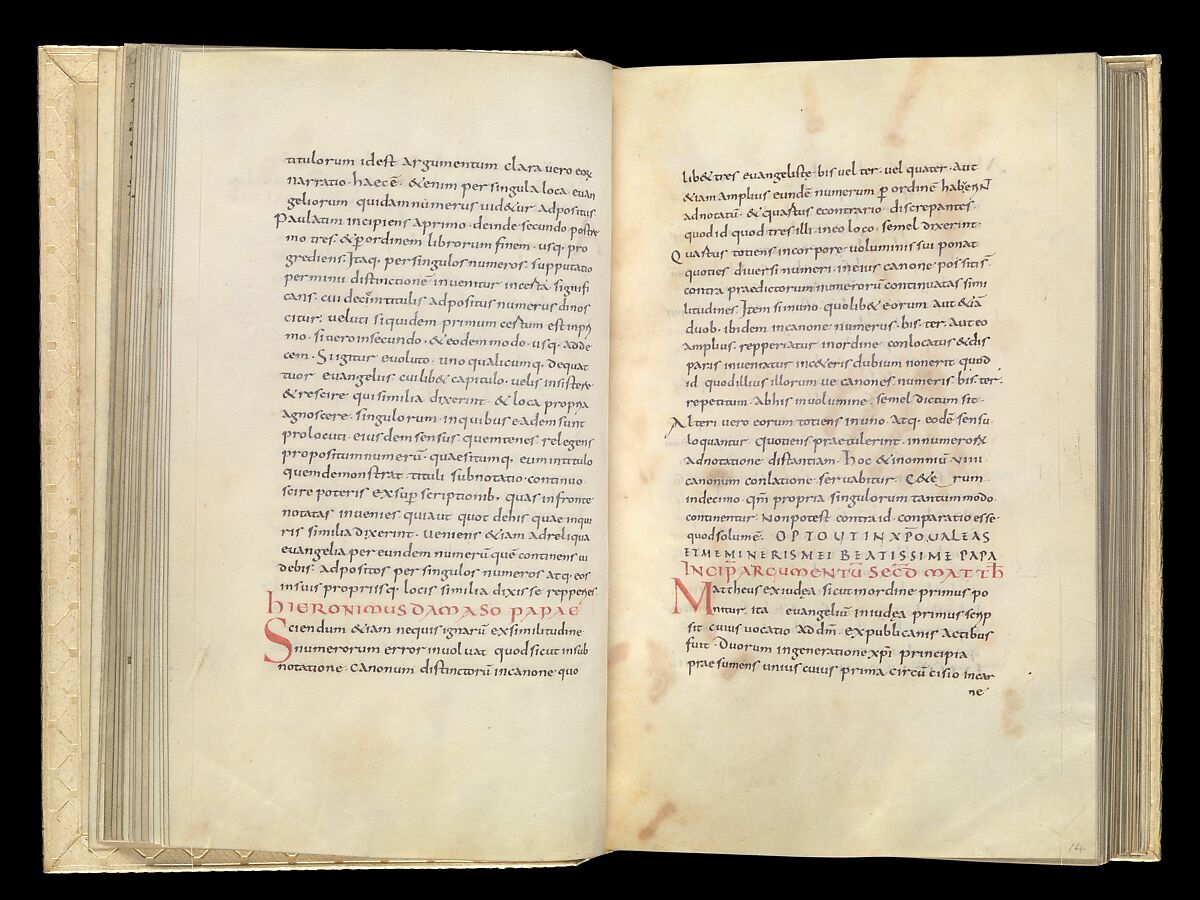 titulorum idest argumentum clara vero eoꝝ
narratio· haec ē· &enim per singula loca euan
geliorum quidam numerus uid&ur adpositus
Paulatim incipiens aprimo· deinde secundo postre
mo tres· &ꝑordinem librorum finem· usq· pro
grediens· Itaq· per singulos numeros· supputatio
per minii distinctionē inuentur incesta signifi
cans· cui titulis adpositus numerus dinos
citur· veluti siquidem primum certum est inpri
mo· siveroinsecundo· &eodem modo· usq· adde
cem· Siigitur evoluto· uno qualicumq· dequat
tuor euangeliis cuilib& capitulo· velis insistere
&rescire quisimilia dixerint· &loca propria
agnoscere· singulorum· inquibus eademsunt
prolocuti· eiusdem sensus· quemtenes relegens
propositum numerū· quaesitumq· eum intitulo
quem demonstrat· tituli subnotatio· continuo
scire poteris exsuꝑ scriptionib· quas infronte
notatas inuenies quiaut quot dehis quae inqui
ris similia dixerint· veniens &iam adreliqua
euangelia per eundem numerū quē continens ui
debis· adpositos per singulos numeros atq· eos
insuis propriisq· locis similia dixisse repperies
HIERONIMUS DAMASO PAPAE
Sciendum &iam nequis ignarū exsimilitudine
numerorum error inuoluat quodsicut insub
notatione· canonum distinctorū incanone· quo
lib& tres euangelistę· bis vel ter· vel quater· aut
&iam amplius eundē numerum ꝑ ordinē habent
adnotatū· &quasius econtrario· discrepantes·
quodid quod tres illi· ineo loco· semel dixerint·
Quasius totiens incorpore uoluminis sui ponat
quoties diuersi numeri· ineius canone positis·
contra praedictorum numerorū continuatas simi
litudines· Item simuno quolib& eorum aut &iā
duob· ibidem incanone numerus· bis· ter· aut eo
amplius· repperiatur inordine· conlocatus &dis
paris inueniatur inc&eris dubium nonerit quod
id quodillius illorum ue canones numeris· bis·ter·
repetitum· abhis inuolumine· semel dictum sit·
Alteri vero eorum totiens inuno· atq· eodē sensu
loquantur quotiens praetulerint· innumerosę
adnotatione distantiam· hoc &inomniū viiii·
canonum conlatione· seruabitur· c&e rum
indecimo· qm̄ propria singulorum tantummodo·
continentur· Nonpotest contra id· conparatio esse
quodsolumē· OPTO UT IN XP̄O UALEAS
ET MEMINERIS MEI BEATISSIME PAPA
INCIP̄ ARGUMENTŪ SEC̄D MATTH̄
Mattheus exiudęa· sicut inordine primus po
nitur· ita euangeliū iniudęa primus scrip
sit· cuius vocatio addm̄· expublicanis actibus
fuit· Duorum ingeneratione xp̄i principia
praesumens unius cuius prima circūcisio incar
ne
14